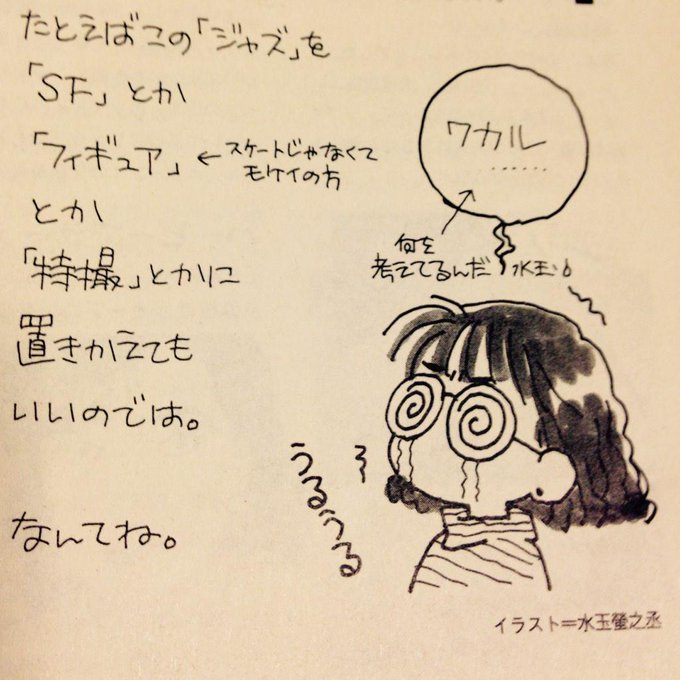 たとえばこの「ジャズ」を
「SF」とか
「フィギュア」←スケートじゃなくて
モケイの方
とか
「特撮」とかに
置きかえても
いいのでは。
なんてね。
ワカル
……
何を
考えてるんだ水玉!!
うるうる
イラスト=水玉螢之丞